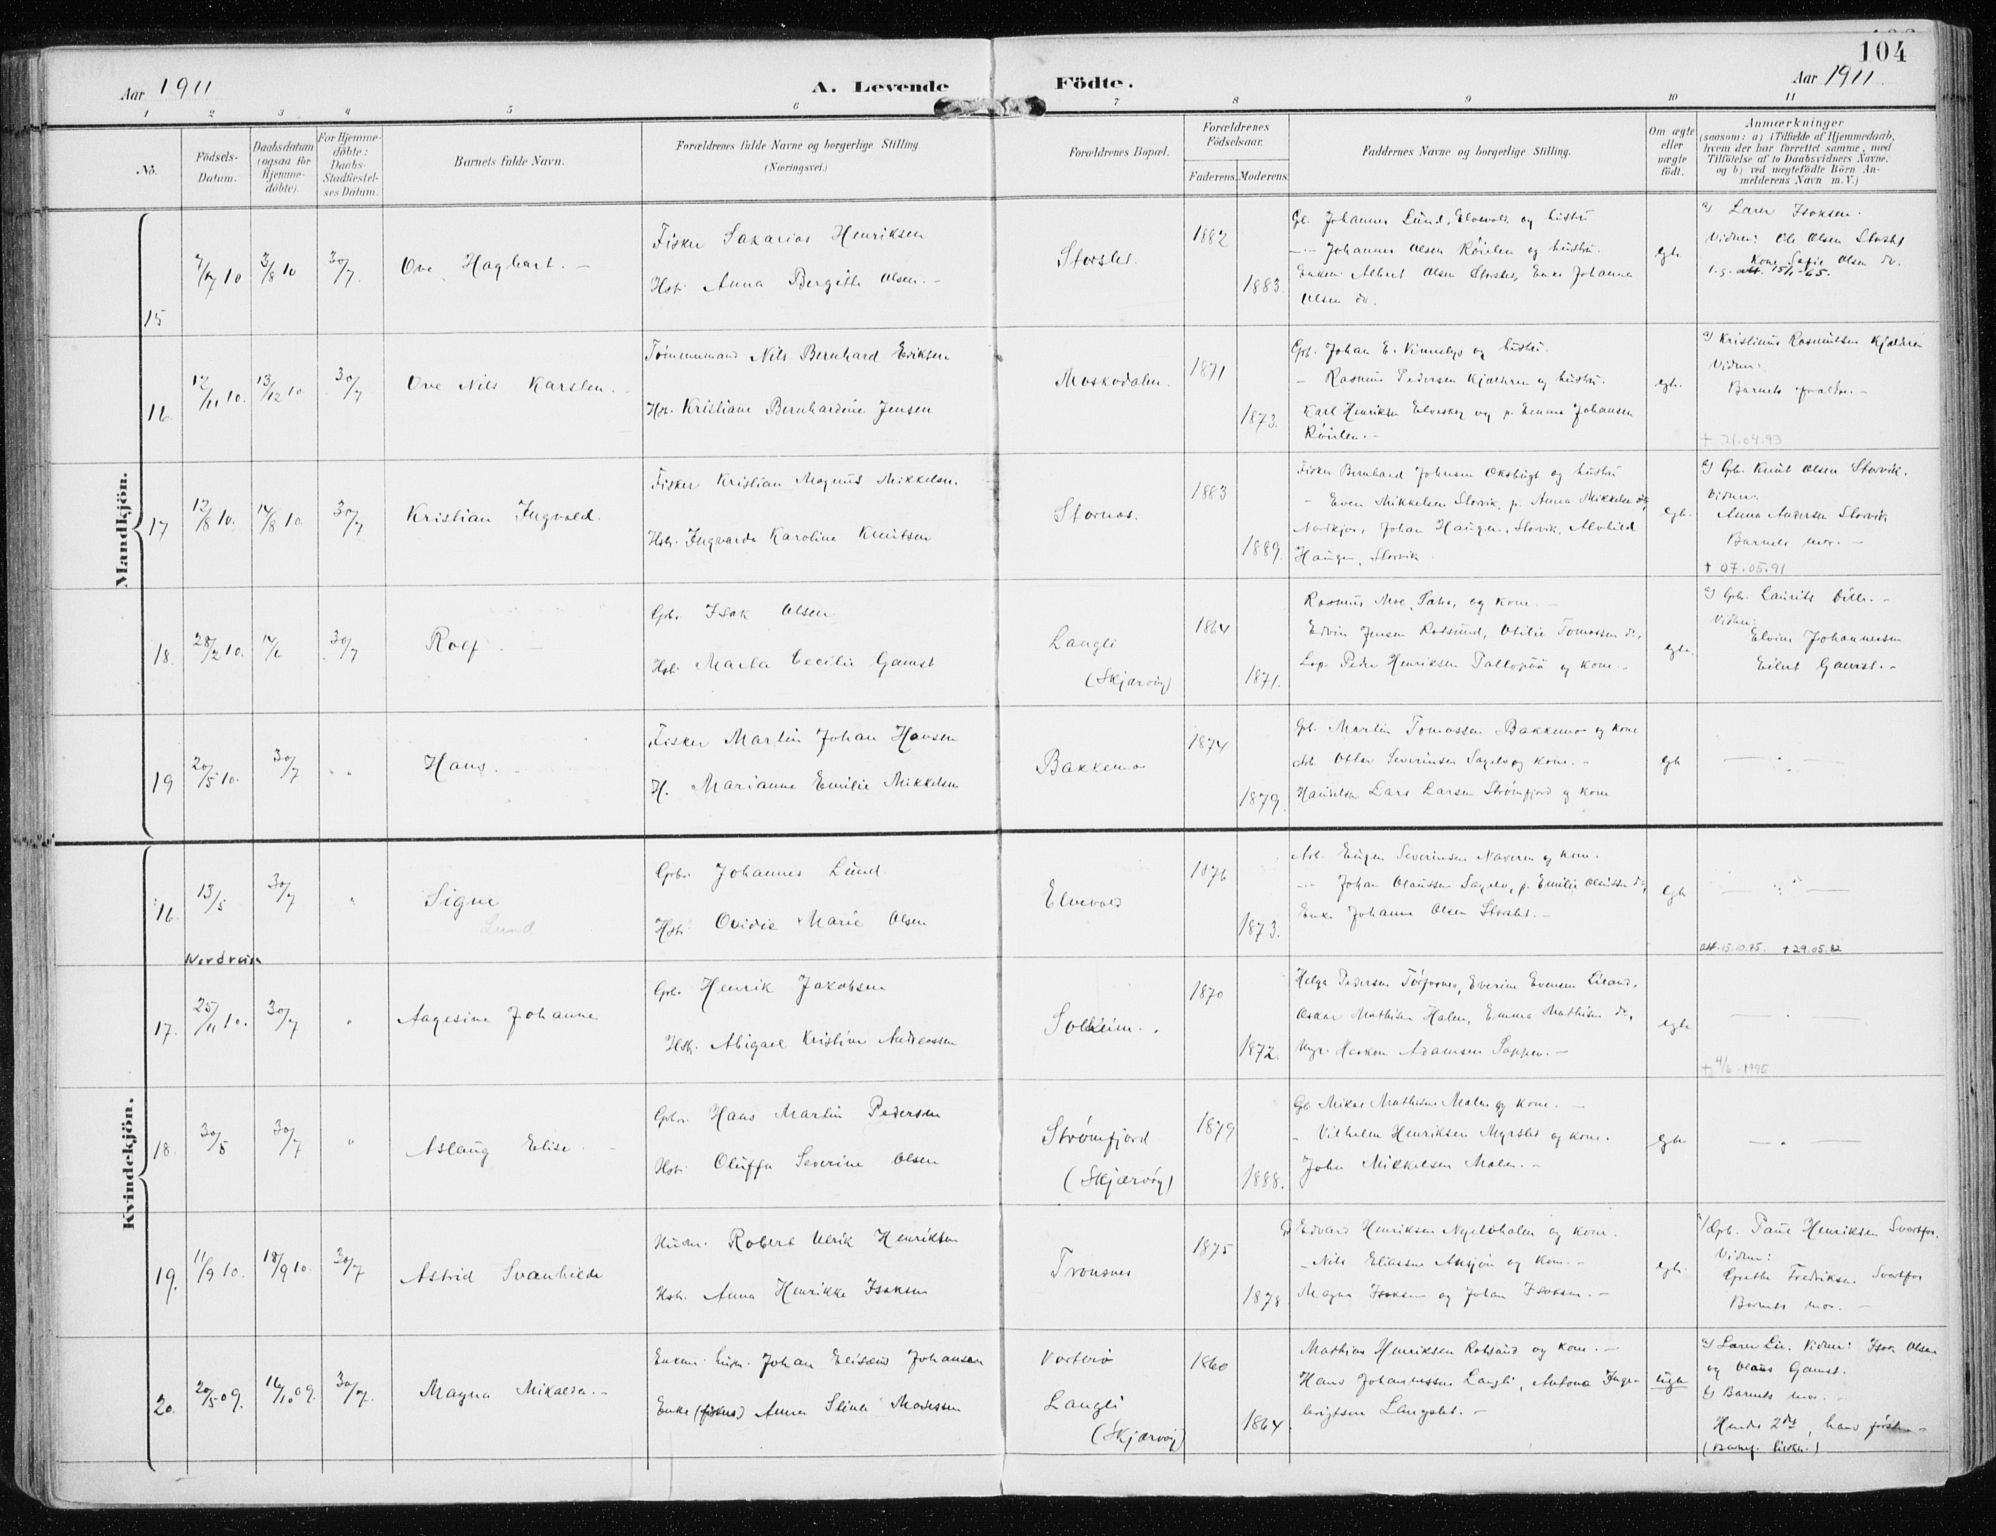 104
Aar 1911
A. Levende Födte.
Aar 1911.
1 2 3 4 5 6 7 8 9 10 11
No.
Födsels-Datum.
Daabsdatum (ogsaa for Hjemme-döbte).
For Hjemme-döbte: Daabs-Stadfæstel-ses Datum.
Barnets fulde Navn.
Forældrenes fulde Navne og borgerlige Stilling. (Næringsvei.)
Forældrenes Bopæl.
Forældrenes Födselsaar.
Faderens. Moderens.
Faddernes Navne og borgerlige Stilling.
Om ægte eller uægte födt.
Anmærkninger
(saasom: a) i Tilfælde af Hjemmedaab,
hvem der har forrettet samme, med
Tilföielse af to Daabsvidners Navne,
og b) ved uægtefödte Börn An-
melderens Navn m. V.)
Mandkjön.
15 7/7 10 3/8 10 30/7. Ove Haghart. -
Fisker Sakarias Henriksen
Hstr. Anna Bergithe Olsen. -
Storslet.
1882
1883.
Gb. Johannes Lund, Elvevold og hustru
- Johannes Olsen Röielen og hustru.
Enkem. Albert Olsen Storslet, Enke Johanna
Olsen do.
egte
a) Larer Isaksen.
Vidner: Ole Olsen Storslet
Kone Sofie Olsen do.
l.g. att. 15/1-65.
16. 12/11 10. 13/12 10 30/7 Ove Nils Karsten.
Tömmermand Nils Bernhard Eriksen
Hstr. Kristiane Bernhardine Jensen
Moskodalen.
1871
1873.
Gbr. Johan E. Vinnelys og hustru.
- Rasmus Pedersen Kjælderen og hustru.
Karl Henriksen Elveskog og p. Emma Johansen
Röielen. -
egte.
a) Kristianus Rasmussen Kjælderen
Vidner:
Barnets forældre. -
+ 21.04.93
17 12/8 10. 14/8 10. 30/7 Kristian Ingvald.
Fisker Kristian Magnus Mikkelsen.
Hstr. Ingvarda Karoline Knutsen
Stornes.
1883
1889.
Fisker Bernhard Johnsen Oksbugt og hustru
- Even Mikkelsen Storvik, p. Anna Mikkelsen do,
Nordkjos, Johan Haugen, Storvik, Alvhild
Haugen, Storvik
egte.
a) Gbr. Knut Olsen Storvik.
Vidner:
Anna Andersen Storvik
Barnets mor. -
+ 07.05.91
18. 28/2 10. 14/6 30/7 Rolf. -
Gbr. Isak Olsen
Hstr. Marta Cecilie Gamst
Langli
(Skjærvöy)
1864
1871.
Rasmus Moe, Sahr, og Kone. -
Edvin Jensen Rotsund, Otilie Tomassen do,
Lap. Peder Henriksen og kone. -
egte.
a) Gbr. Laurits -
Vidner:
Elvine Johannessen
Eilert Gamst. -
19 20/5 10. 30/7 " " Hans. -
Fisker Martin Johan Hansen
H. Marianne Emilie Mikkelsen
Bakkemo
1874
1879.
Gbr. Martin Tomassen Bakkemo og kone
Arb. Ottar Severinsen Sagelv og kone. -
Handelsm Lars Larsen Strömfjord og kone
egte
— " —
Kvindekjön.
16. 13/5 30/7 " Signe
Lund
Nordreisa
Gbr. Johannes Lund
Hstr. Ovidie Marie Olsen
Elvevold
1876
1873.
Arb. Eugen Severinsen Naveren og kone.
- Johan Olaussen Sagelv, p. Emilie Olaussen do,
Enke Johanna Olsen Storslet. -
egte
— " —
att. 15.10.75. +29.05.82
17. 25/11 10. 30/7 " Aagesine Johanne
Gbr. Henrik Jakobsen
Hstr. Abigael Kristine Andreassen
Solheim. .
1870
1872.
Helga Pedersen Törfosnes, Everine Evensen Lieland,
Oskar Mathisen Halen, Emma Mathisen do,
Ungk. Haakon Adamsen Sappen. -
egte
— . —
+ 4/6-1995
18. 30/5 30/7 " Aslaug Elise. -
Gbr. Hans Martin Pedersen
Hstr. Oluffa Severine Olsen
Strömfjord
(Skjærvöy)
1879
1888.
Gb. Mikal Mathisen Malen og Kone. -
- Vilhelm Henriksen Myrslet og kone.
John Mikkelsen Malen. -
egte
— . —
19. 11/9 10. 18/9 10. 30/7 Astrid Svanhilde
Husm. Robert Ulrik Henriksen
Hstr. Anna Henrikke Isaksen
Tronsnes
1875
1878
Gb Edvard Henriksen Nyelvholmen og kone.
- Nils Eliassen og Kone. -
Magna Isaksen og Johan Isaksen. -
egte.
a/ Gbr. Paul Henriksen Svartfos.
Vidner:
Grethe Fredriksen Svartfos
Barnets mor. -
20. 20/5 09. 16/10 09. 30/7. Magna Mikalda. -
Enkem. Johan Eliseus Johansen
Enke (fiskers) Anna Stina Madsen
Vorterö
Langli
(Skjærvöy)
1860
1864.
Mathias Henriksen Rotsund og kone. -
Hans Johannessen Langli, Antona Inge-
brigtsen Langslet. -
uegte
a) Larer Lie. Vidner: Isak Olsen
og Olaus Gamst.
b) Barnets mor. -
Hendes 2det, hans förste